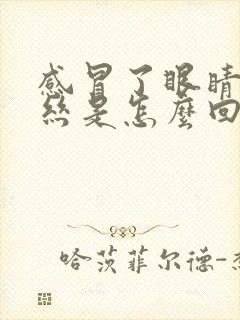 感冒了眼睛
丝是怎麼回
哈茨菲尔德-杰